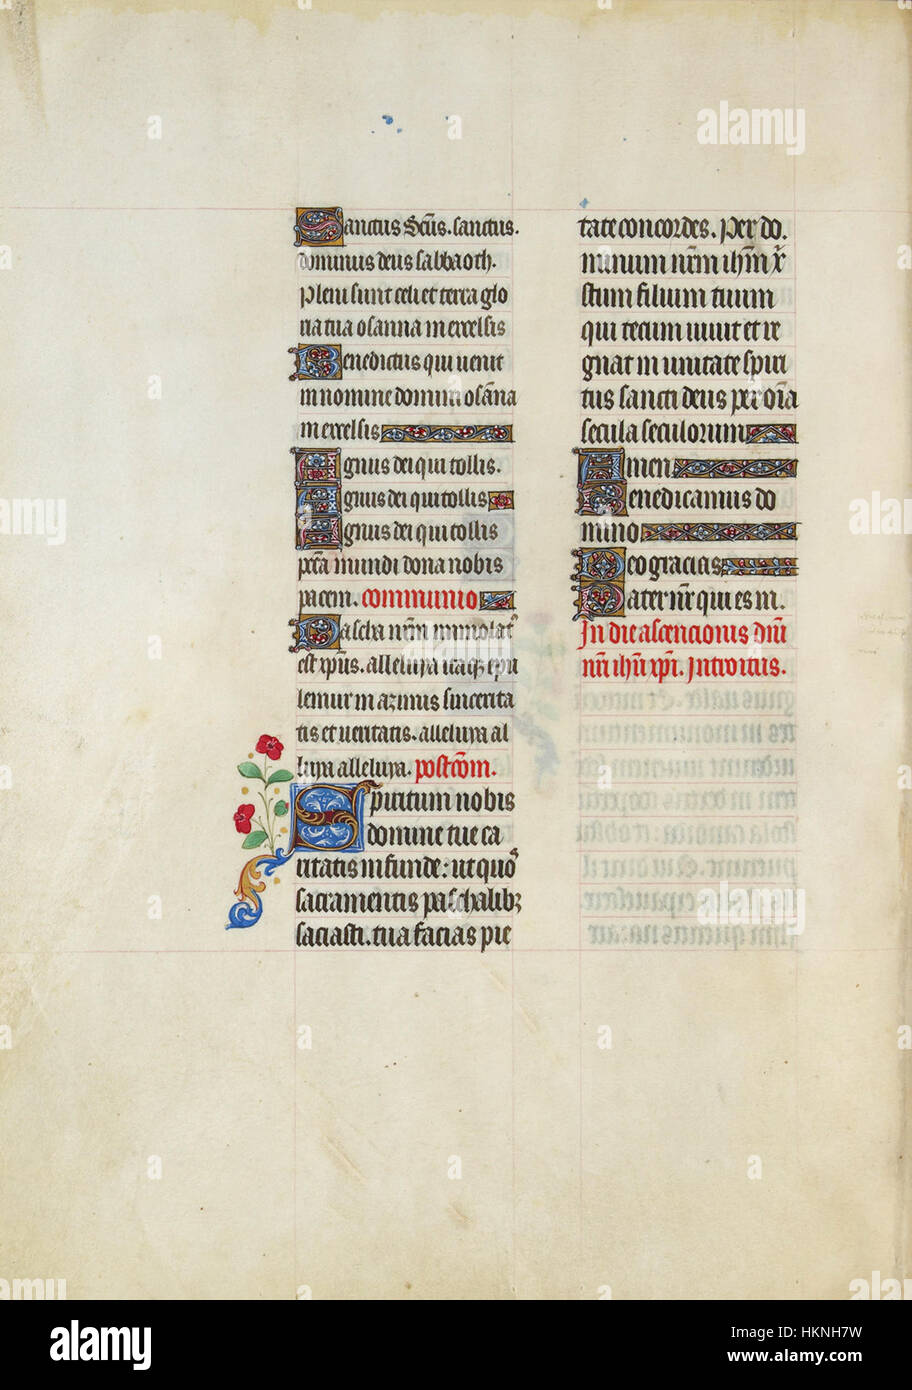 Sanctus Scūs. sanctus.
dominus deus sabbaoth.
Pleni sunt celi et terra glo
ria tua osanna in excelsis
Benedictus qui uenit
in nomine domini osāna
in excelsis
Agnus dei qui tollis.
Agnus dei qui tollis
Agnus dei qui tollis
pctā mundi dona nobis
pacem. communio
Pascha nrm immolat᾿
est xpūs. alleluya itaqꝫ epu
lemur in azimis sincerita
tis et ueritatis. alleluya al
luya alleluya. postcōm.
Spiritum nobis
domine tue ca
ritatis infunde: ut quos
sacramentis paschalibꝫ
saciasti. tua facias pie
tate concordes. Per do.
minum nrm ihm xp̄
stum filium tuum
qui tecum uiuit et re
gnat in unitate spiri
tus sancti deus per oīa
secula seculorum
Amen
Benedicamus do
mino
Deo gracias
Pater nr̄ qui es in.
In die ascencionis dn̄i
nr̄i ihū xp̄i. Introitus.
alamy
a
alamy
Image ID: HKNH7W
www.alamy.com